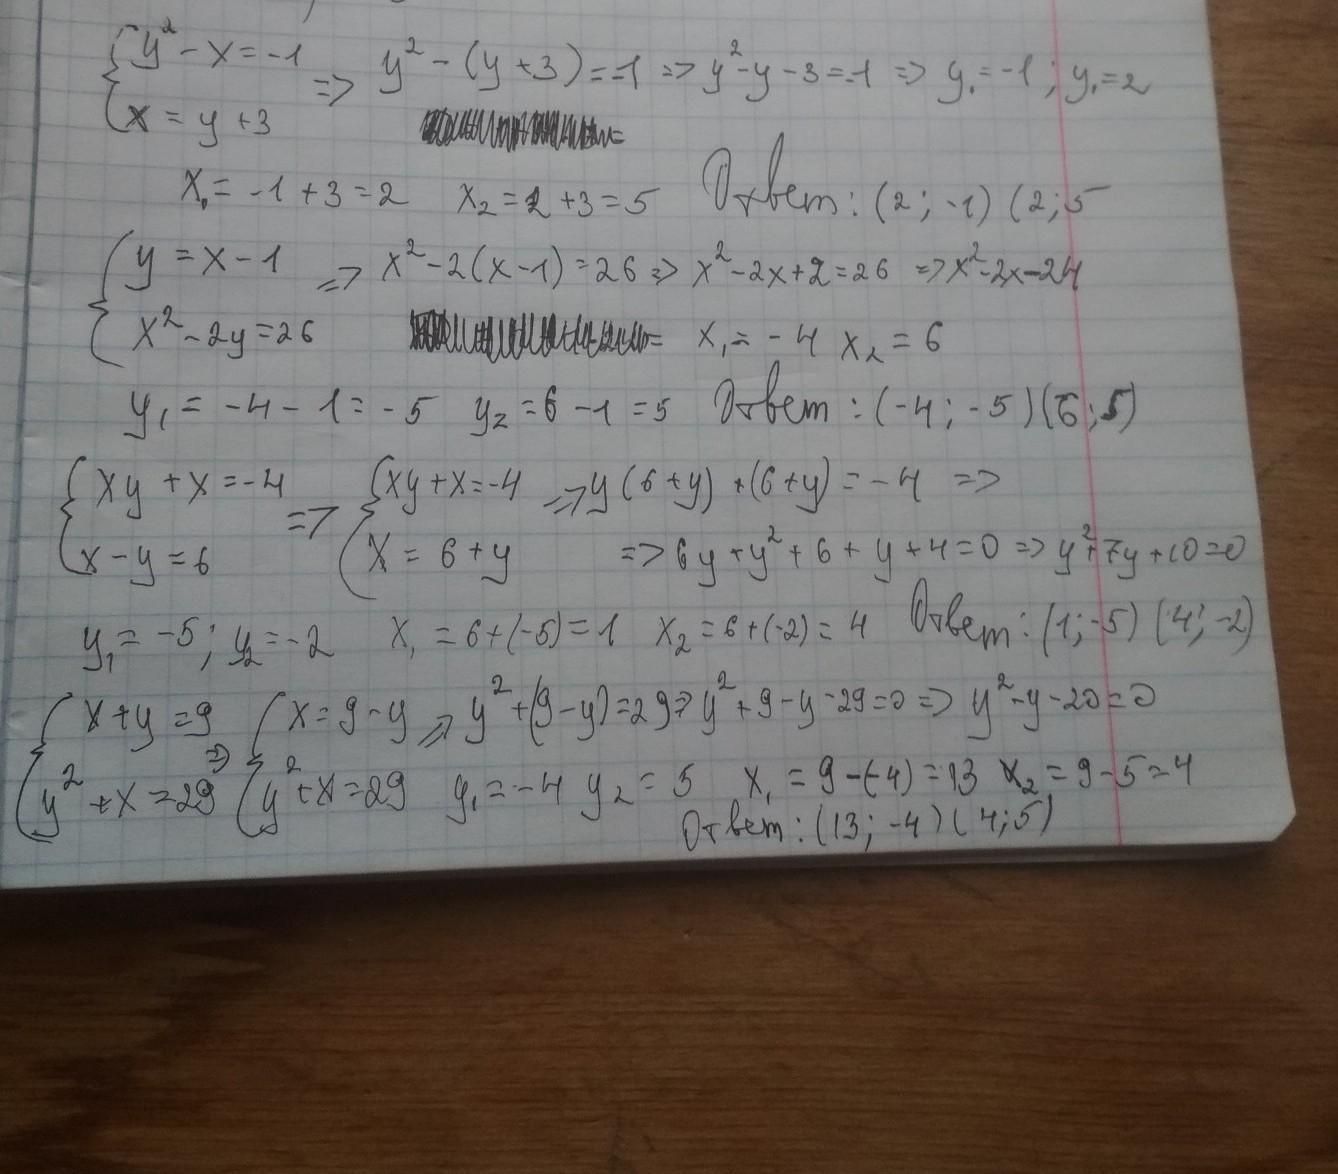 {y² - x = -1 => y² - (y + 3) = -1 => y² - y - 3 = -1 => y₁ = -1 ; y₁ = 2
{x = y + 3
x₁ = -1 + 3 = 2 x₂ = 2 + 3 = 5 Ответ: (2; -1) (2; 5
{y = x - 1 => x² - 2(x - 1) = 26 => x² - 2x + 2 = 26 => x² - 2x - 24
{x² - 2y = 26 = x₁ = -4 x₂ = 6
y₁ = -4 - 1 = -5 y₂ = 6 - 1 = 5 Ответ: (-4; -5) (6; 5)
{xy + x = -4 => {xy + x = -4 => y(6 + y) + (6 + y) = -4 =>
{x - y = 6 {x = 6 + y => 6y + y² + 6 + y + 4 = 0 => y² + 7y + 10 = 0
y₁ = -5; y₂ = -2 x₁ = 6 + (-5) = 1 x₂ = 6 + (-2) = 4 Ответ: (1; -5) (4; -2)
{x + y = 9 => {x = 9 - y => y² + (9 - y) = 29 => y² + 9 - y - 29 = 0 => y² - y - 20 = 0
{y² + x = 29 {y² + x = 29 y₁ = -4 y₂ = 5 x₁ = 9 - (-4) = 13 x₂ = 9 - 5 = 4
Ответ: (13; -4) (4; 5)